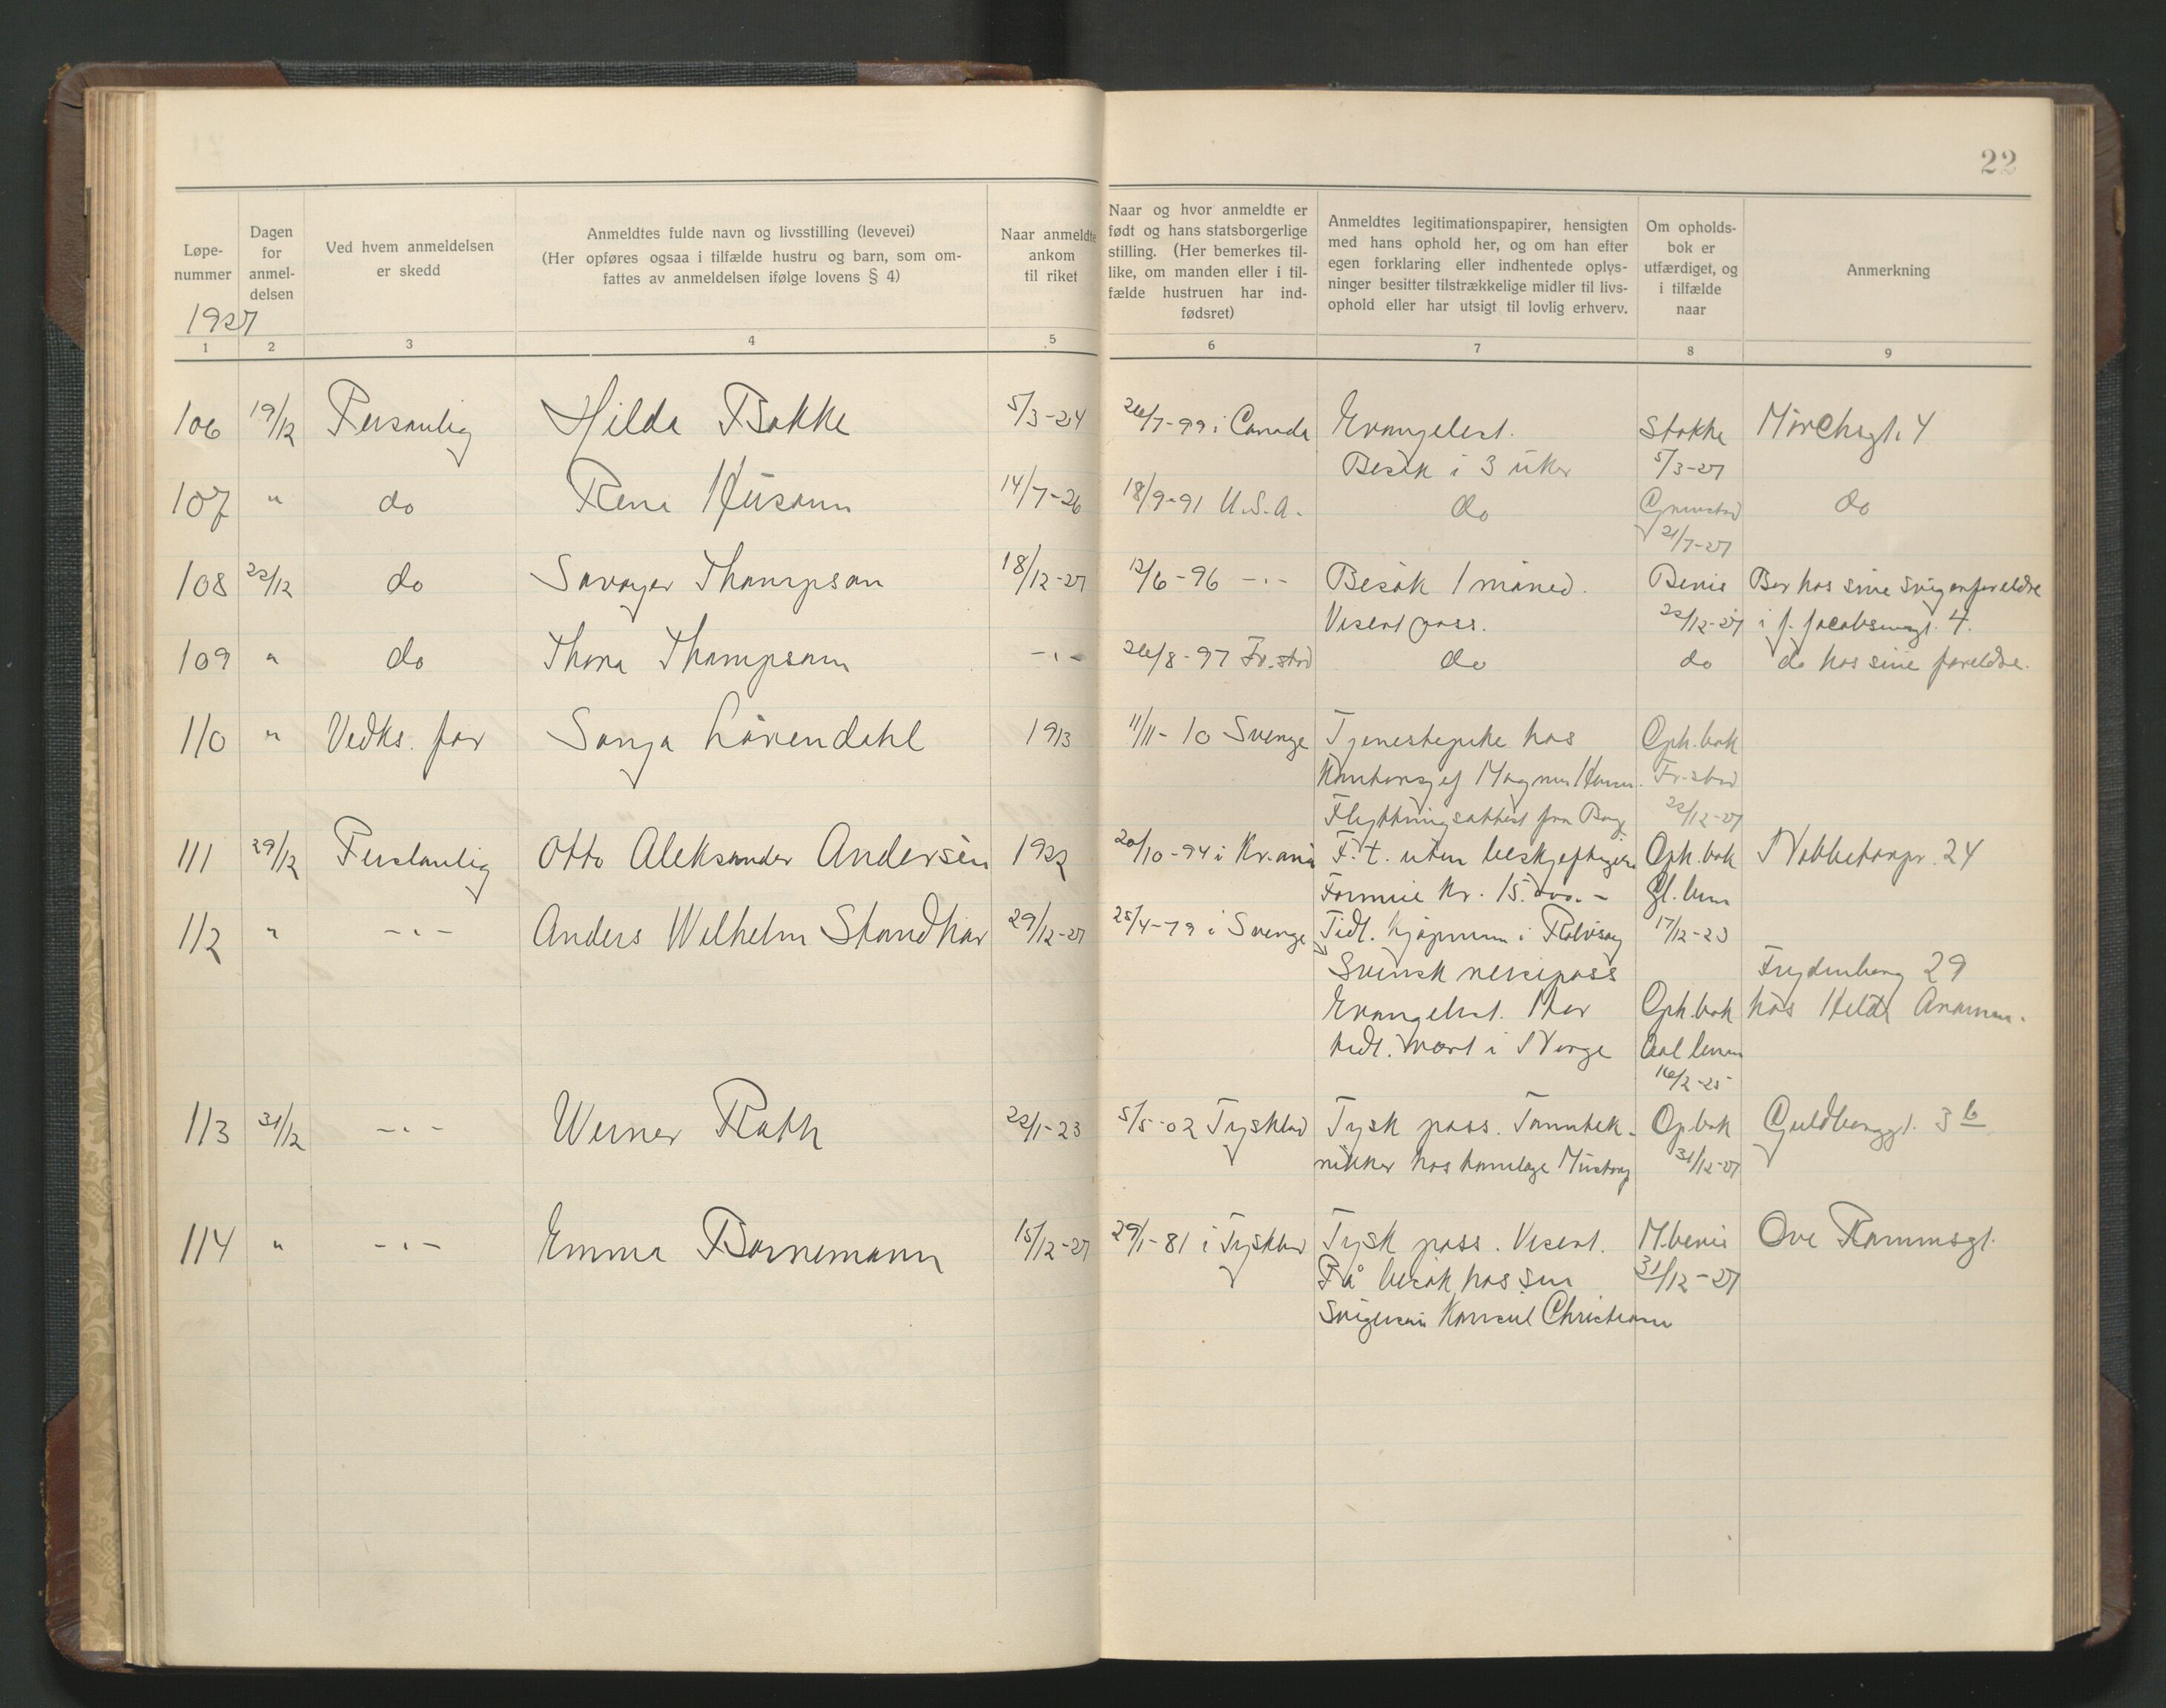 22
Løpe-
nummer
1927
Dagen
for
anmel-
delsen
Ved hvem anmeldelsen
er skedd
Anmeldtes fulde navn og livsstilling (levevei)
(Her opføres ogsaa i tilfælde hustru og barn, som om-
fattes av anmeldelsen ifølge lovens § 4)
Naar anmeldte
ankom
til riket
Naar og hvor anmeldte er
født og hans statsborgerlige
stilling. (Her bemerkes til-
like, om manden eller i til-
fælde hustruen har ind-
fødsret)
Anmeldtes legitimationspapirer, hensigten
med hans ophold her, og om han efter
egen forklaring eller indhentede oplys-
ninger besitter tilstrækkelige midler til livs-
ophold eller har utsigt til lovlig erhverv.
Om opholds-
bok er
utfærdiget, og
i tilfælde
naar
Anmerkning
1 2 3 4 5 6 7 8 9
106 19/12 Personlig Hilda Bakke 5/3-24 26/7-99 i Canada Evangelist. Stokke Mörchsgt. 4
Besøk i 3 uker 5/3-27
107 " do 14/7-26 18/9-91 U.S.A. do Grimstad do
21/7-27
108 22/12 do Savayer Thompson 18/12-27 12/6-96 -"- Besøk 1 måned. Bevis Bor hos sine svigerforeldre
Visert pass. 22/12-27 i J. Jacobsensgt. 4.
109 " do Thora Thompson -"- 26/8-97 Fr.stad do do do hos sine foreldre.
110 " Vedks. far Sonja Lövendahl 1913 11/11-10 Sverige Tjenestepike hos Oph.bok
Kontorsjef Magnus Fr.stad
Flyttningsattest fra Borge 22/12-27
111 29/12 Personlig Otto Aleksander Andersèn 1922 20/10-94 i Kr.ania F.t. uten Oph.bok Nabbetorpv. 24
Formue kr. 15.000.- Gl.
112 " -"- Anders Wilhelm 29/12-27 25/4-79 i Sverige Tidl. kjøpmann i Rolvsøy 17/12-23
Svensk reisepass Frydenberg 29
Evangelist. Har Oph.bok hos
tidl. vært i Norge
16/2-25
113 31/12 -"- Werner Rath 22/1-23 5/5-02 Tyskland Tysk pass. Tanntek- Op.bok Guldbergsgt. 3 b
nikker hos tannlæge 31/12-27
114 " -"- Emma Bornemann 15/12-27 29/1-81 i Tyskland Tysk pass. Visert. M.bevis Ove Rammsgt.
På besøk hos sin 31/12-27
svigersøn Konsul